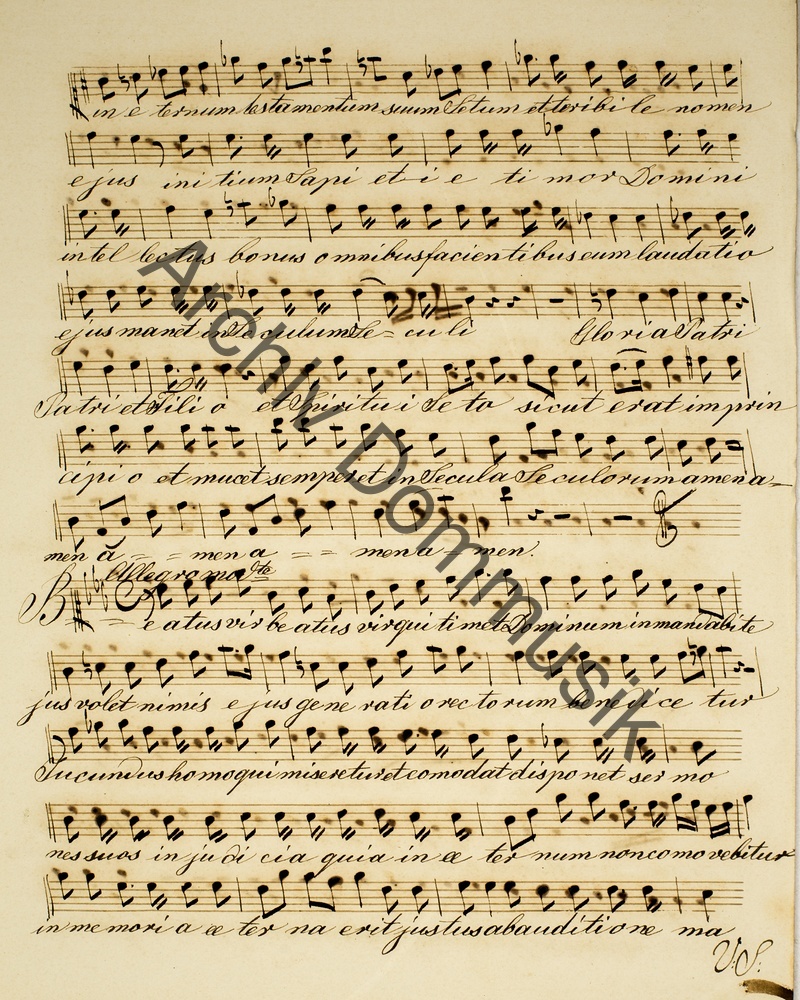 in e ternum testamentum suum Setum et teribi le nomen
ejus ini tium Sapi et i e ti mor Domini
intel lectus bonus omnibus facientibus eum laudatio
ejus manet in Se culum Se = cu li Gloria Patri
Patri et Fili o et Spiritu i Se to sicut erat im prin
cipi o et nucet semper et in Secula Se culorum amen a =
men a = = men a = = men a = men.
Allegro modte
Be atus vir be atus vir qui timet Dominum in mandabit e
jus volet nimis ejus gene rati o rectorum bene di ce tur
Jucundus homo qui miseretur et comodat dispo net ser mo
nes suos in ju di cia quia in æ ter num non como vebitur
in me mori a æ ter na erit justus ab auditi one ma
V: S:
Archiv Dommusik